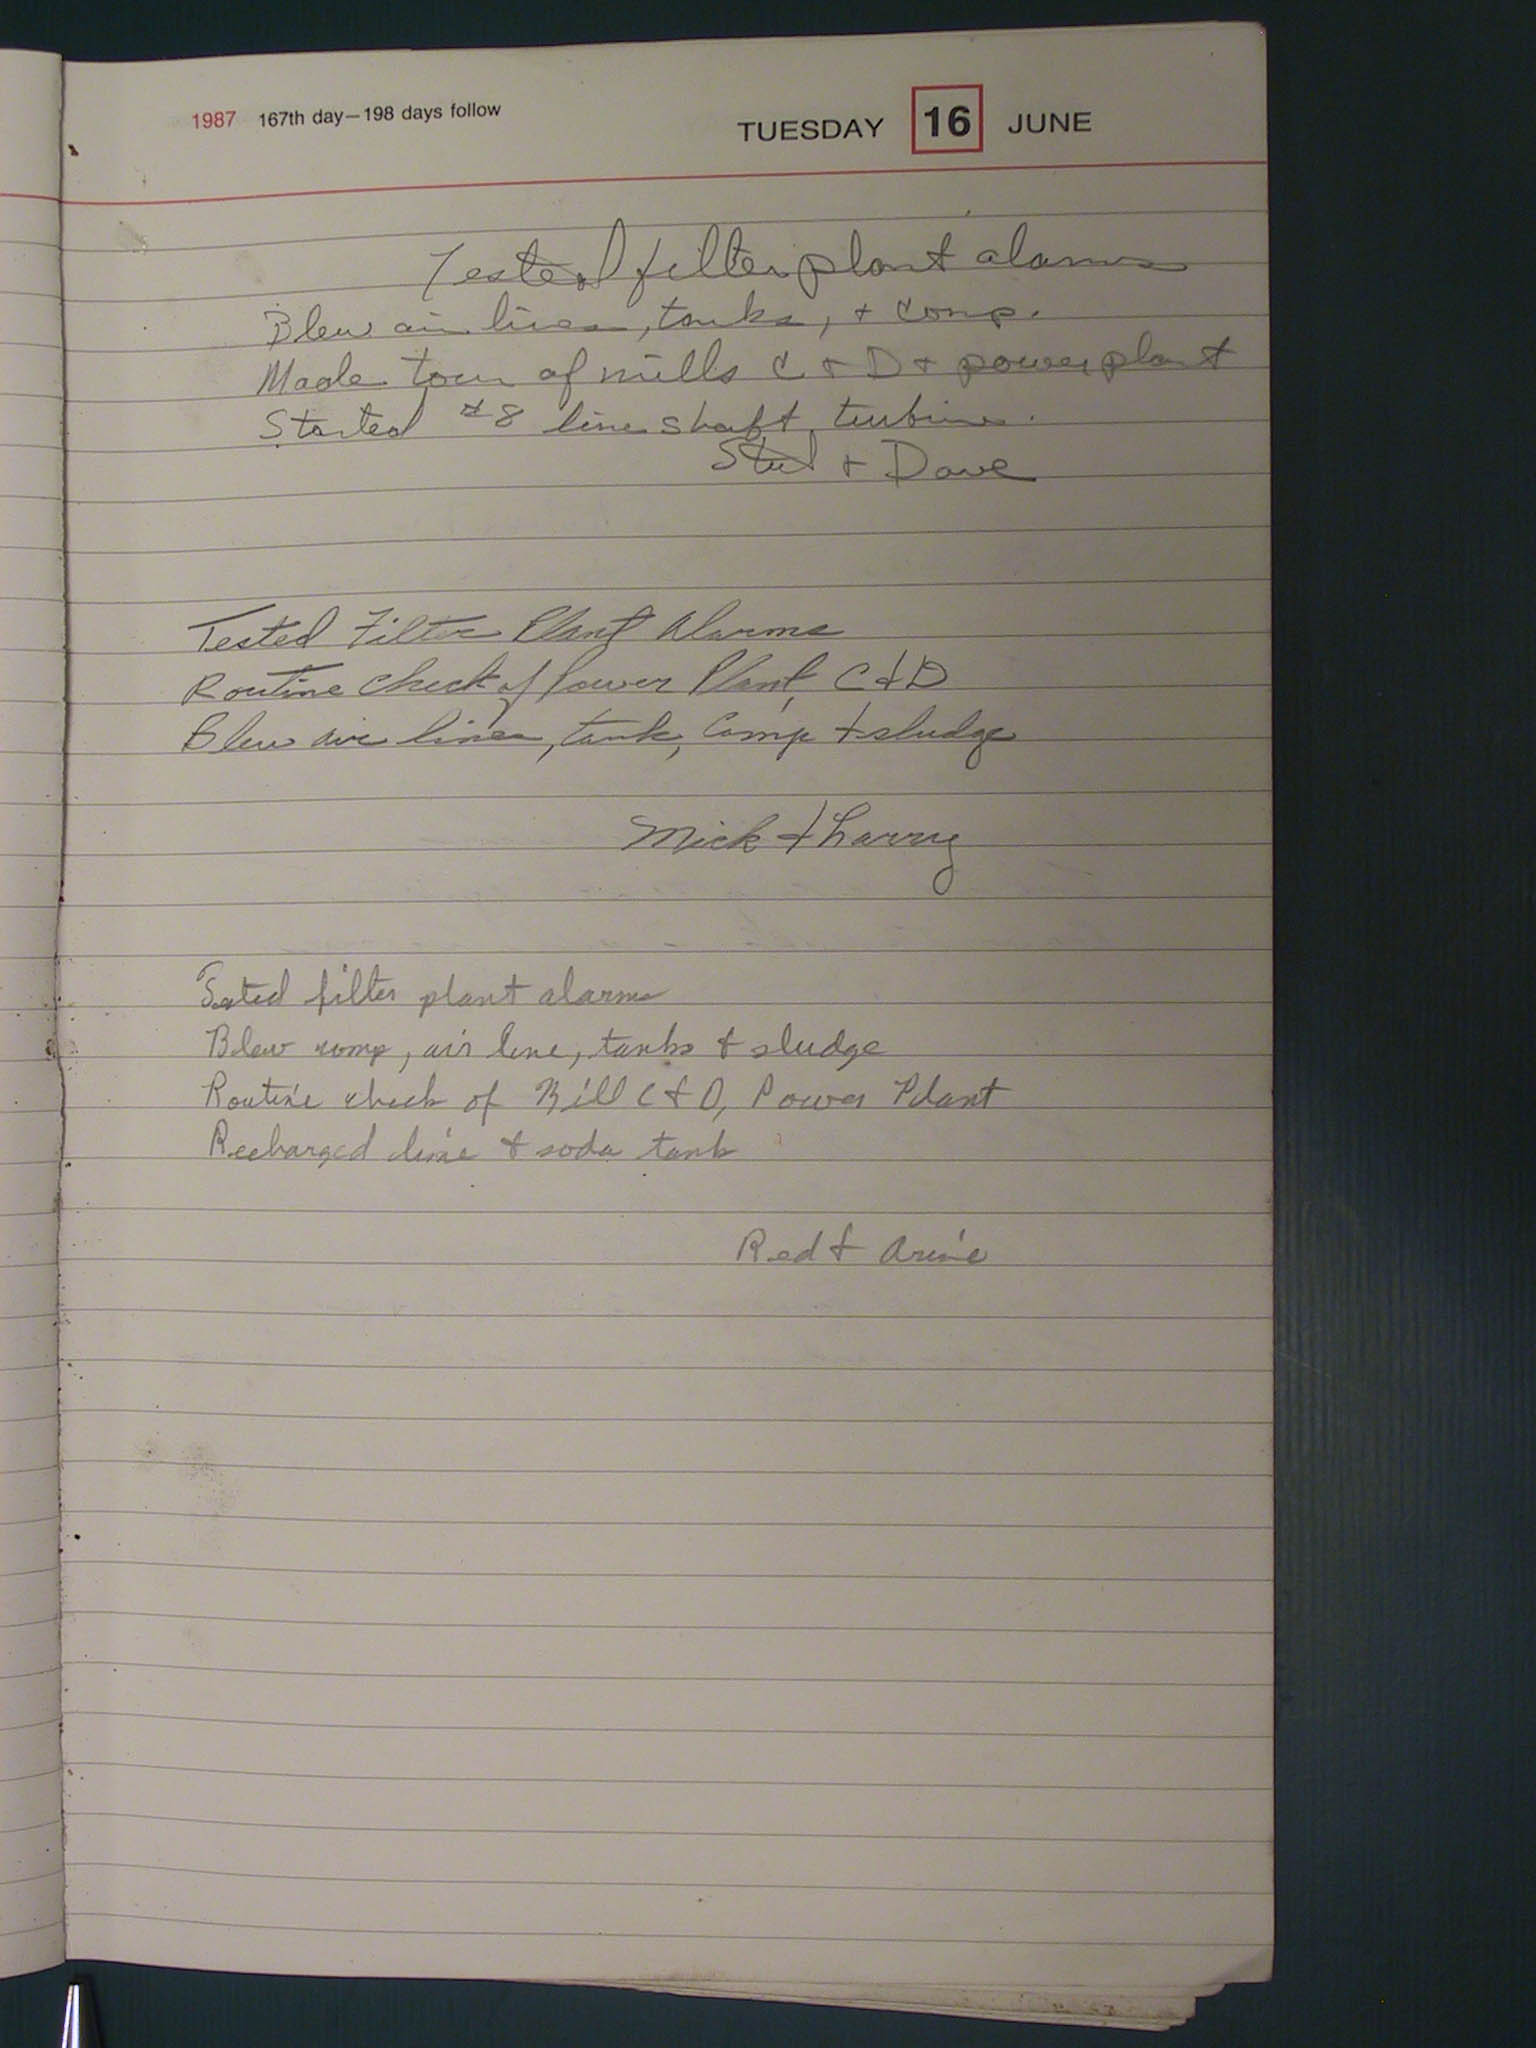 1987 167th day—198 days follow
TUESDAY 16 JUNE
Tested filter plant alarms
Blew air lines, tanks, + comp.
Made tour of mills C + D + power plant
Started #8 line shaft turbine.
+ Dave
Tested Filter Plant Alarms
Routine Check of Power Plant, C & D
Blew air lines, tank, Comp & sludge
Mick & Larry
Tested filter plant alarms
Blew comp, air line, tanks & sludge
Routine check of C & D, Power Plant
Recharged lime & soda tank
Red & Arnie